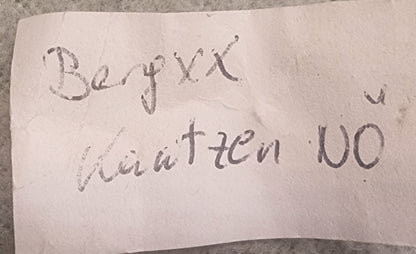 Bergxx
Kautzen NÖ